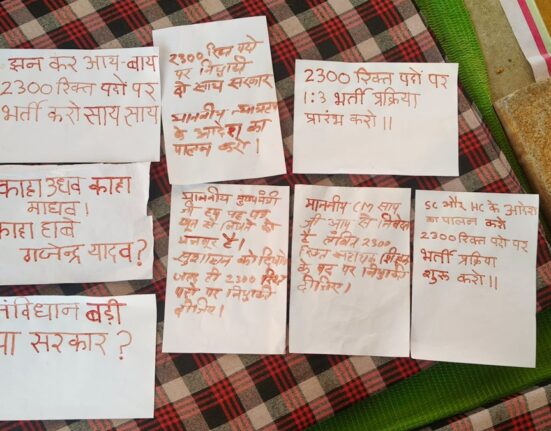 झन कर आय-बाय
2300 रिक्त पदो पर
भर्ती करो साय साय
2300 रिक्त पदो
पर नियुक्ति
दो साय सरकार
माननीय न्यायालय
के आदेश का
पालन करो।
2300 रिक्त पदों पर
1:3 भर्ती प्रक्रिया
प्रारंभ करो॥
काहा उधव काहा
माधव।
काहा हाबे
गजेन्द्र यादव?
संविधान बड़ी
या सरकार?
माननीय मुख्यमंत्री
जी हम यह पत्र
खून से लिखने को
मजबूर है।
सुशासन को
जल्द ही 2300 रिक्त
पदो पर नियुक्ति
दीजिए।
माननीय CM साय
जी आप से निवेदन
है लंबित 2300
रिक्त सहायक शिक्षक
के पद पर नियुक्ति
दीजिए।
SC और HC के आदेश
का पालन करो
2300 रिक्त पदो पर
भर्ती प्रक्रिया
शुरू करो॥